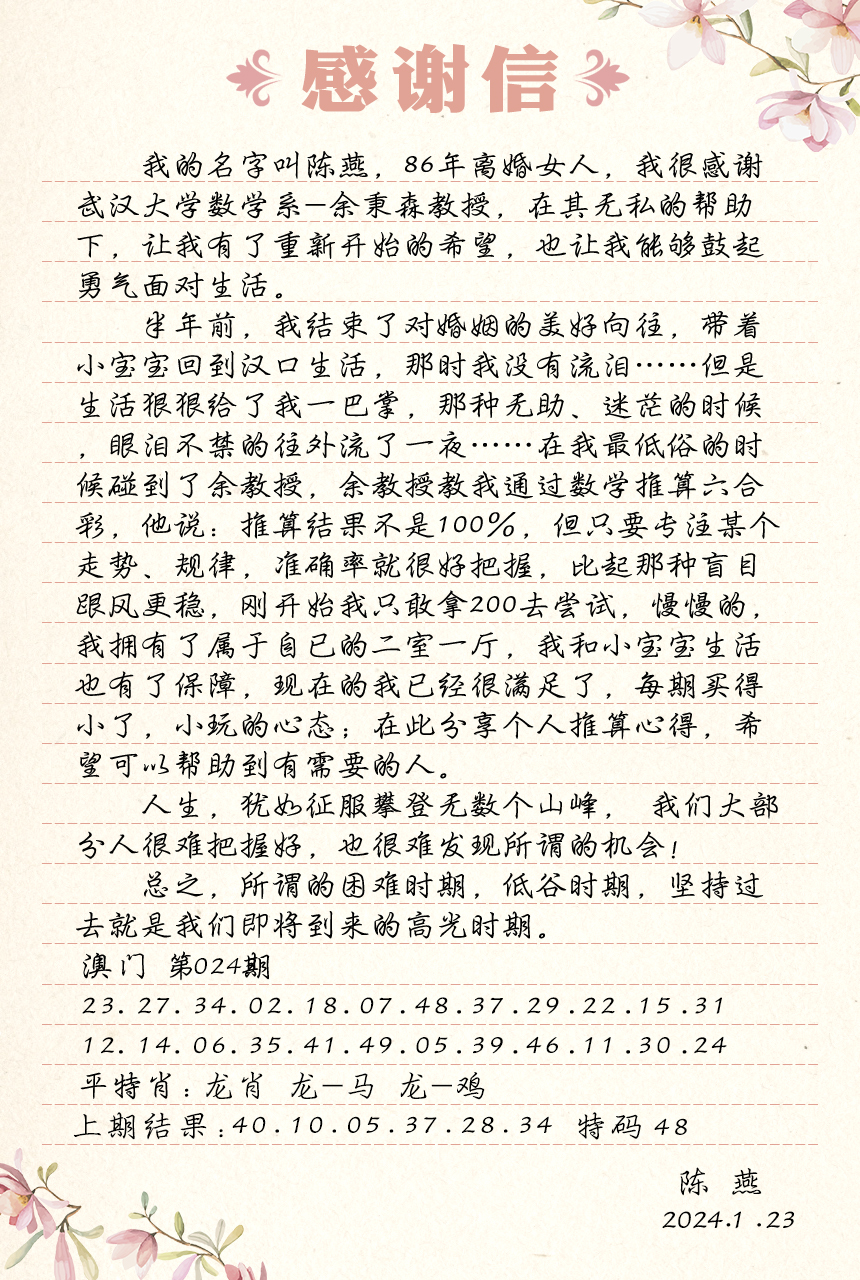 感谢信
我的名字叫陈燕，86年离婚女人，我很感谢
武汉大学数学系—余秉森教授，在其无私的帮助
下，让我有了重新开始的希望，也让我能够鼓起
勇气面对生活。
半年前，我结束了对婚姻的美好向往，带着
小宝宝回到汉口生活，那时我没有流泪……但是
生活狠狠给了我一巴掌，那种无助、迷茫的时候
，眼泪不禁的往外流了一夜……在我最低俗的时
候碰到了余教授，余教授教我通过数学推算六合
彩，他说：推算结果不是100%，但只要专注某个
走势、规律，准确率就很好把握，比起那种盲目
跟风更稳，刚开始我只敢拿200去尝试，慢慢的，
我拥有了属于自已的二室一厅，我和小宝宝生活
也有了保障，现在的我已经很满足了，每期买得
小了，小玩的心态；在此分享个人推算心得，希
望可以帮助到有需要的人。
人生，犹如征服攀登无数个山峰， 我们大部
分人很难把握好，也很难发现所谓的机会！
总之，所谓的困难时期，低谷时期，坚持过
去就是我们即将到来的高光时期。
澳门 第024期
23.27.34.02.18.07.48.37.29.22.15.31
12.14.06.35.41.49.05.39.46.11.30.24
平特肖：龙肖 龙—马 龙—鸡
上期结果：40.10.05.37.28.34 特码48
陈 燕
2024.1.23